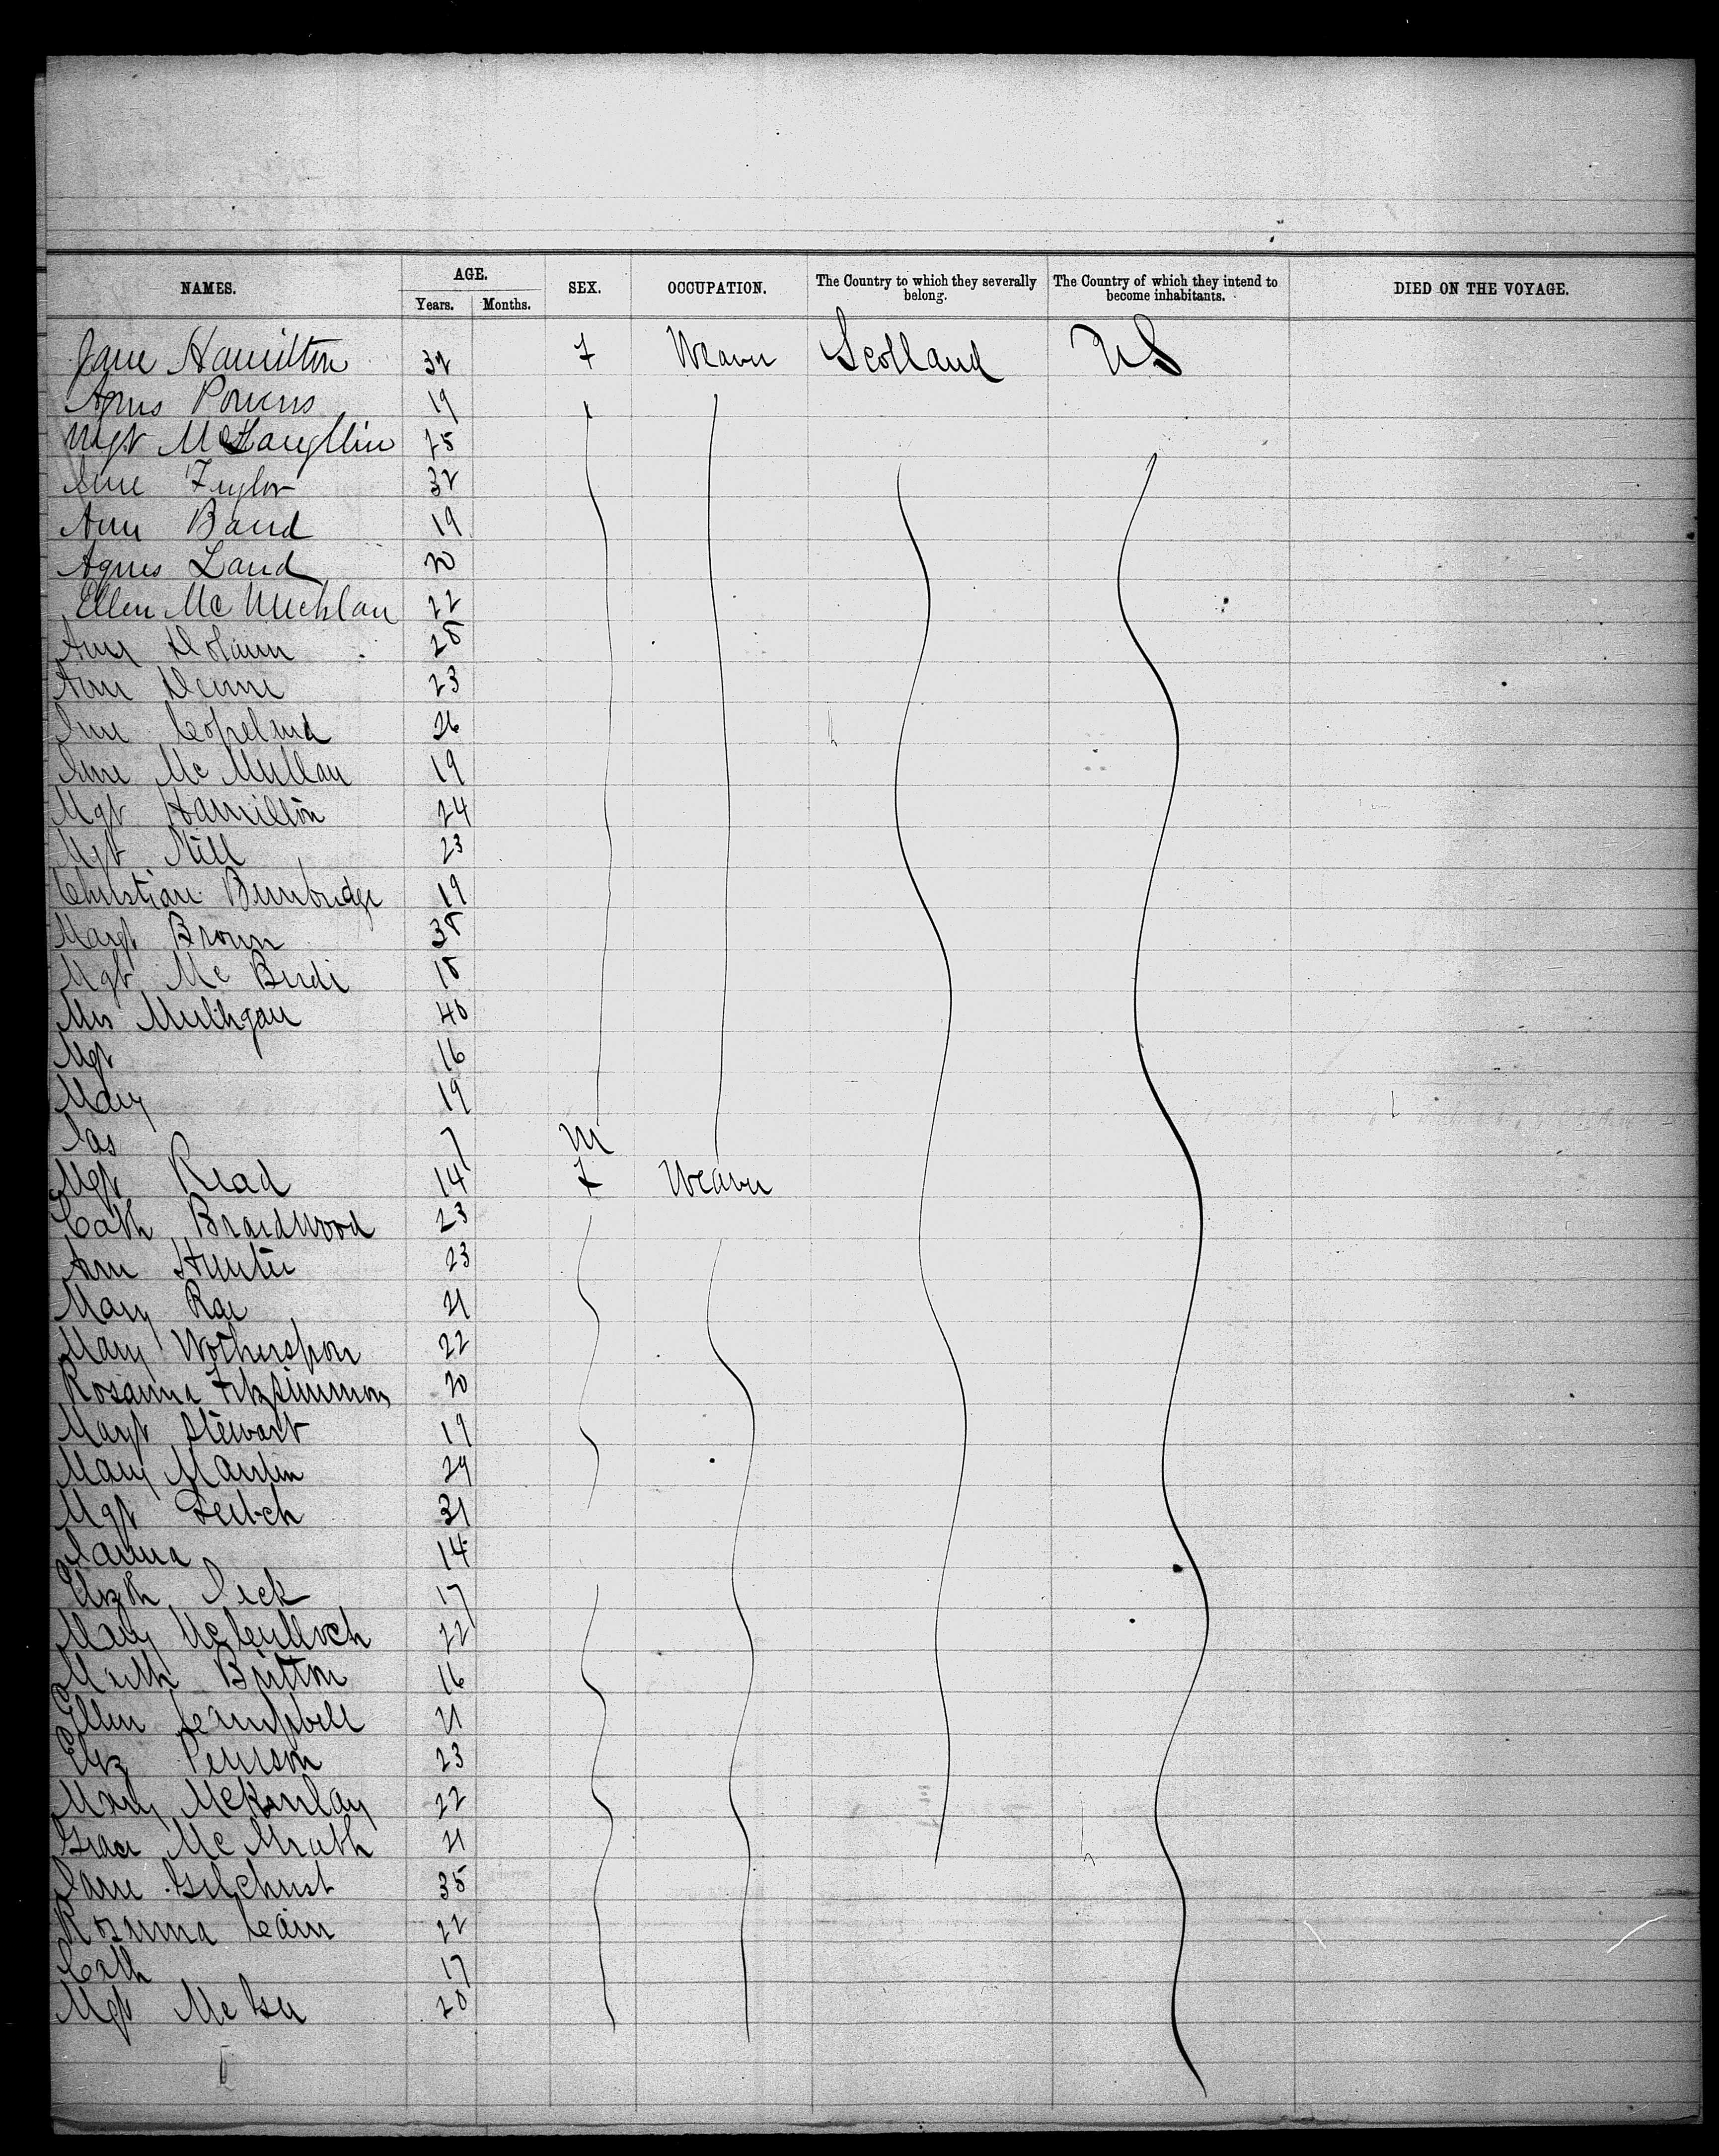 NAMES. AGE. SEX. OCCUPATION. The Country to which they severally belong. The Country of which they intend to become inhabitants. DIED ON THE VOYAGE.
Years. Months.
Jane Hamilton 32 F Weaver Scotland US
Agnes Powers 19
Mgt McLaughlin 25
Jane Taylor 32
Ann Baird 19
Agnes Laud 20
Ellen Mc 22
Ann 28
Ann 23
Jane Copeland 26
Jane McMullan 19
Mgt Hamilton 24
Mgt 23
Christian Bunbridge 19
Margt Brown 38
Mgt Mc 18
Mrs Mulligan 40
Mgt 16
Mary 19
Jas 7 M
Mgt Read 14 F Weaver
Cath Braidwood 23
Ann Hunter 23
Mary Rae 21
Mary Wotherspoon 22
Rosanna Fitzsimmons 20
Margt Stewart 19
Mary Martin 24
Mgt Leitch 31
14
Elizth 17
Mary McCulloch 22
Britton 16
Ellen Campbell 21
Eliz Pearson 23
Mary McKinlay 22
Grace Mc 21
Jane Gilchrist 35
Rosanna Cain 22
Cath 17
Mgt McGee 20